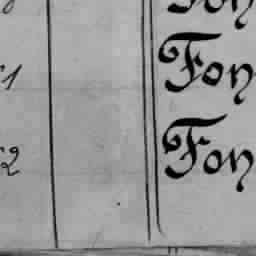 Fon
1 Fon
2 Fon